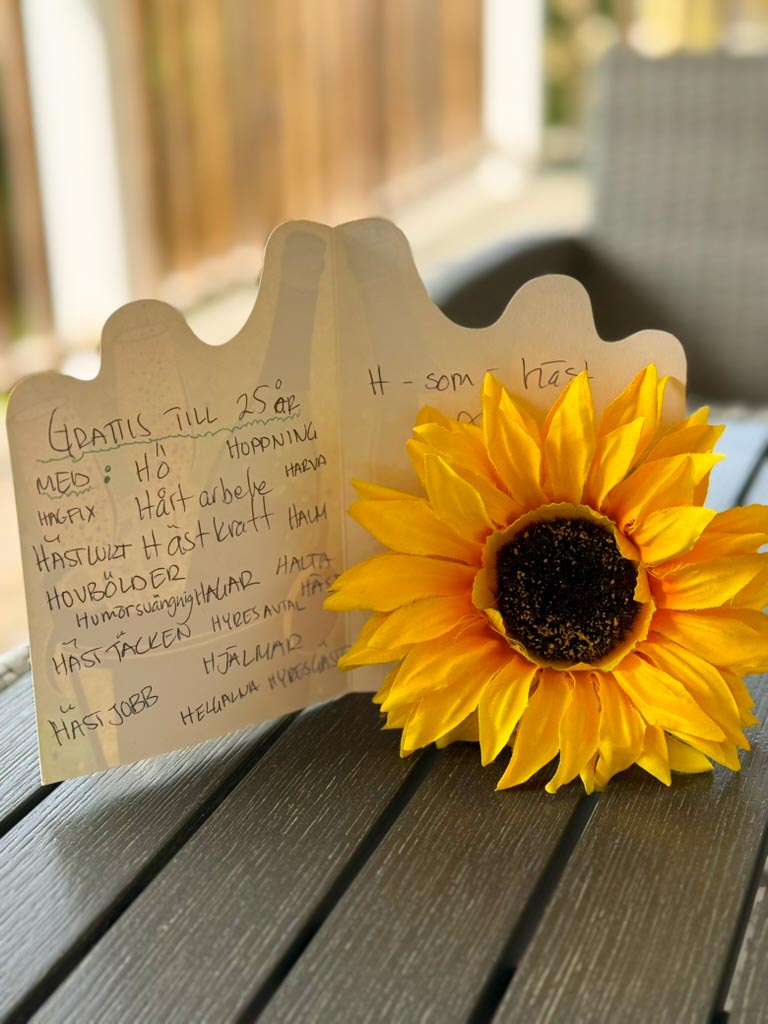 GRATTIS TILL 25 år
MED: HÖ HOPPNING
HAGFIX Hårt arbete HARVA
HÄSTLUKT Hästkraft HALM
HOVBÖLDER HALTA
Humörsvängnig HAGAR HÄST
HÄSTTÄCKEN HYRESAVTAL
HJÄLMAR
HÄSTJOBB HELGALNA HYRESGÄST
H - som - häst